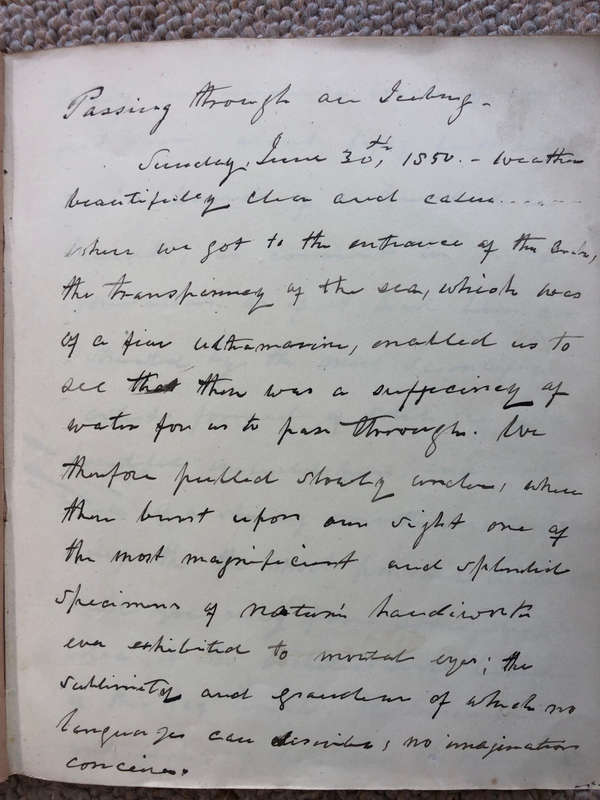 Passing through an Iceberg -
Sunday, June 30th, 1850. - Weather
beautifully clear and calm.......
when we got to the entrance of the Arch,
the transparency of the sea, which was
of a fine ultramarine, enabled us to
see that there was a sufficiency of
water for us to pass through. We
therefore pulled slowly under, when
there burst upon our sight one of
the most magnificent and splendid
specimens of nature's handiwork
ever exhibited to mortal eyes; the
sublimity and grandeur of which no
language can describe, no imagination
conceive.